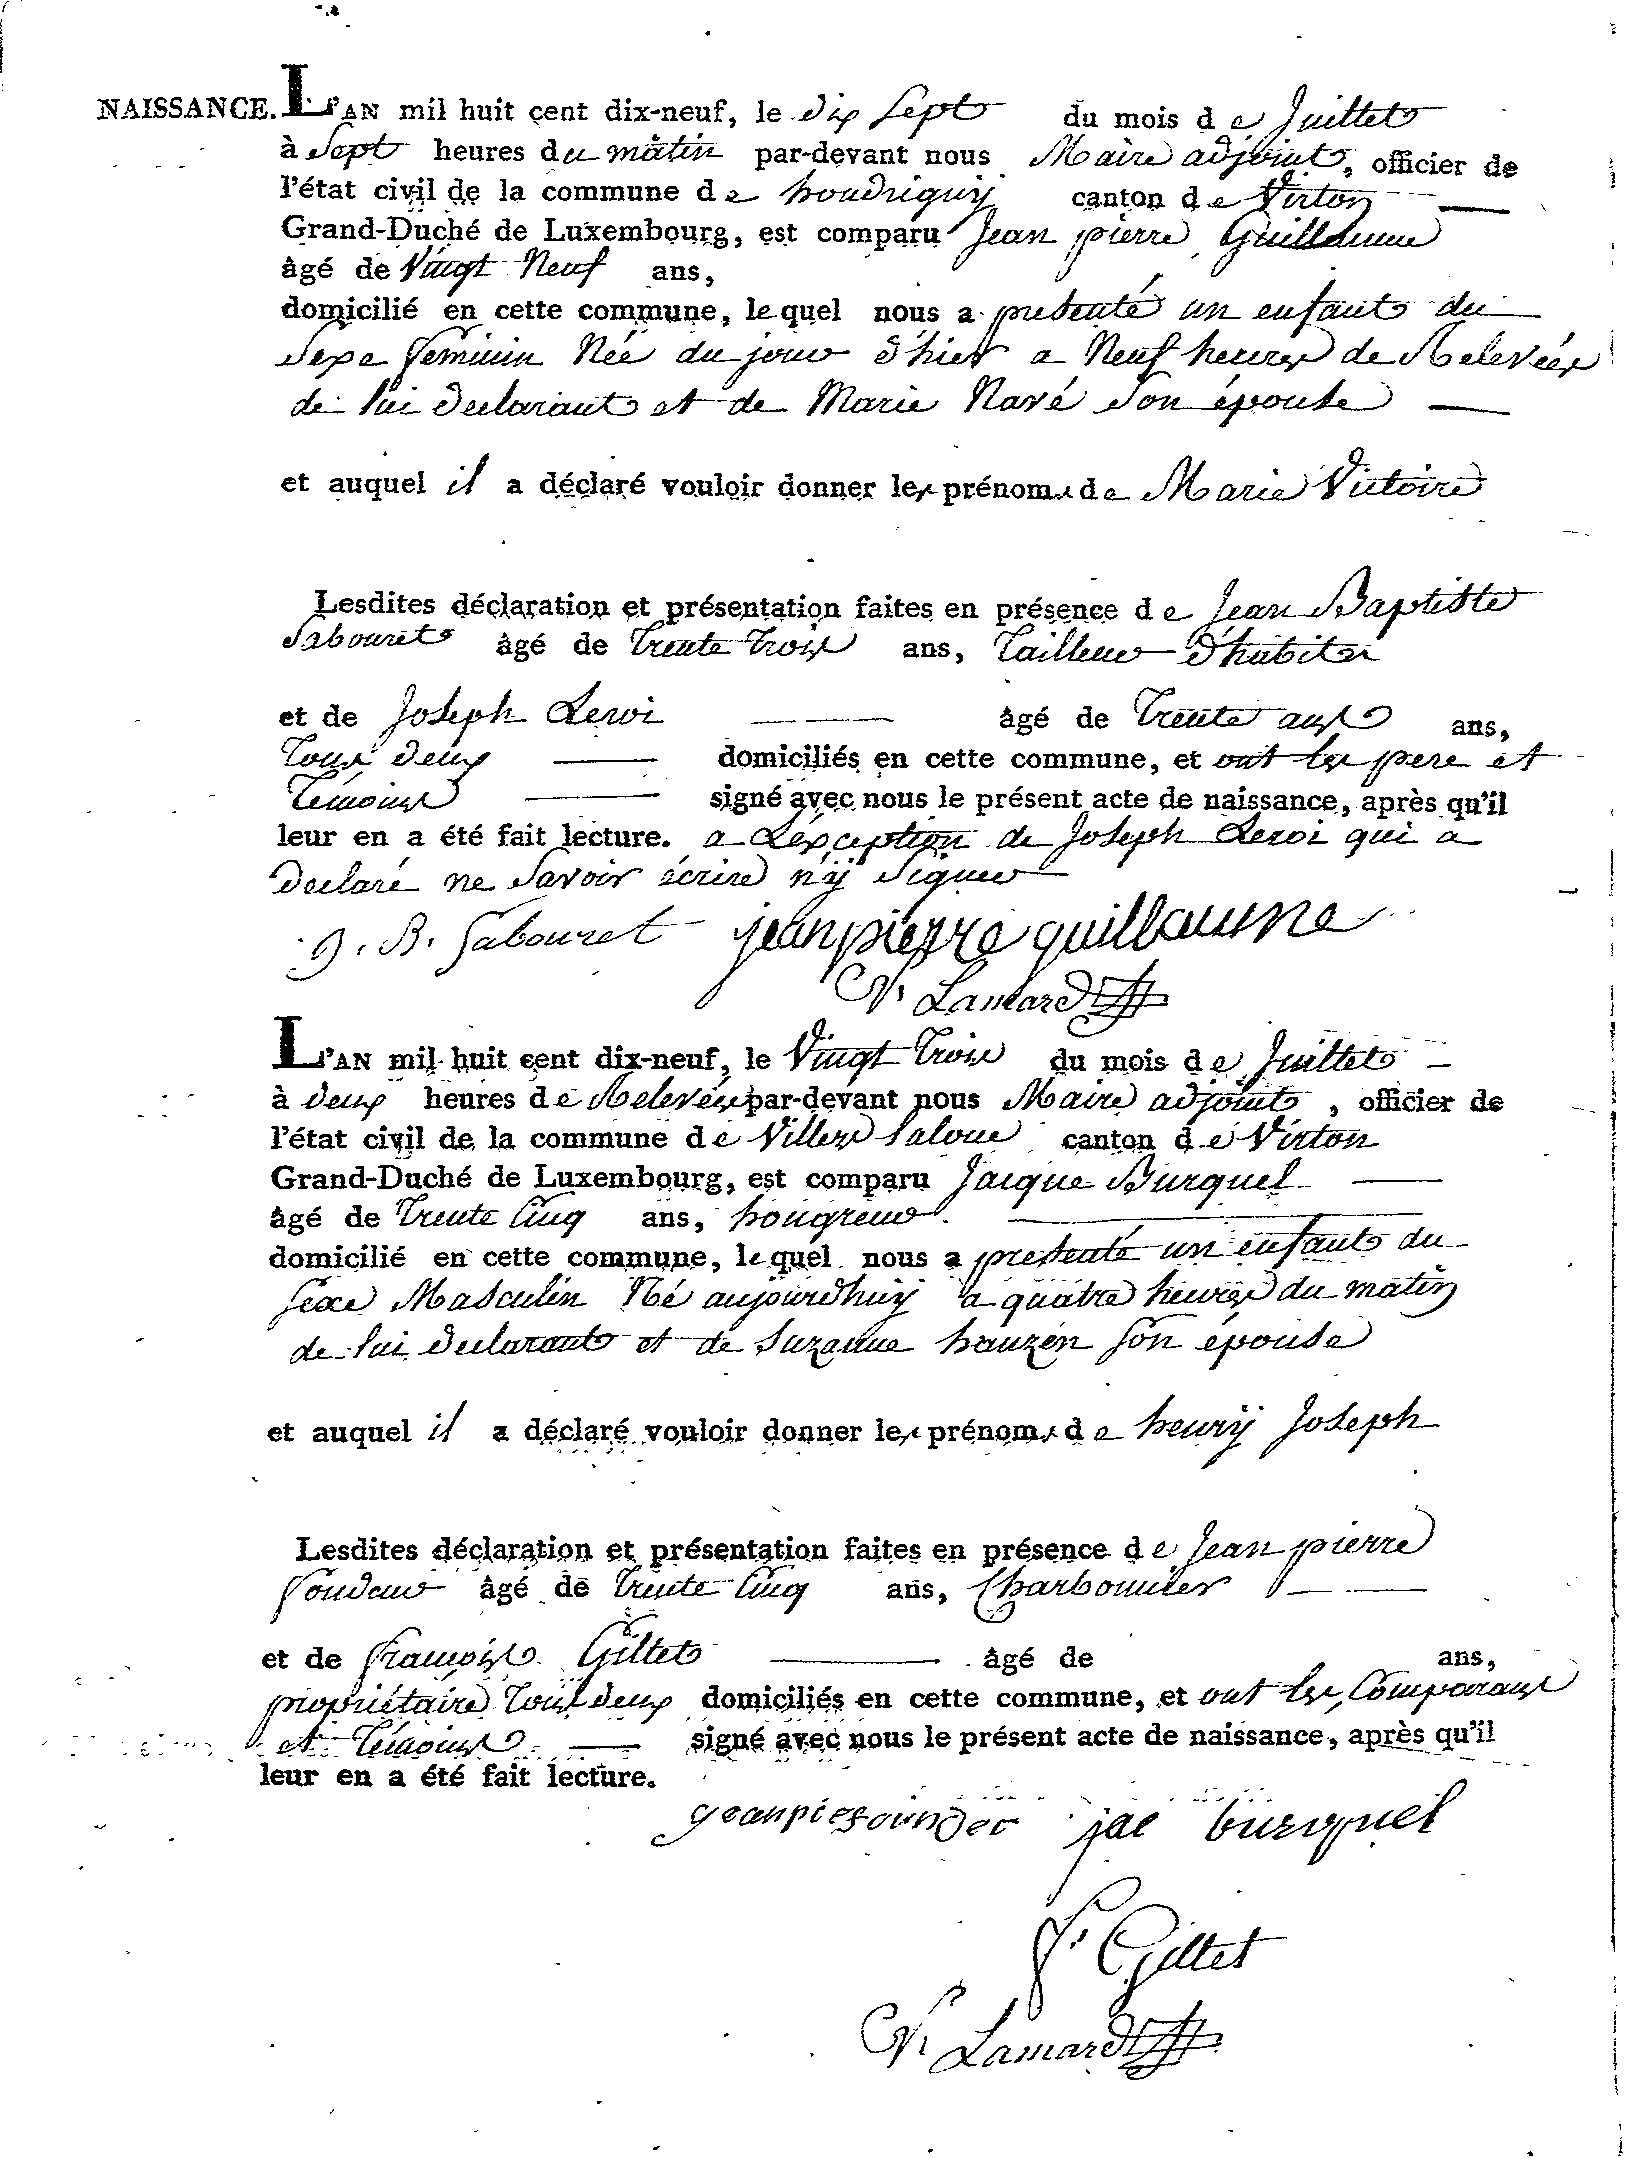 NAISSANCE. L'AN mil huit cent dix-neuf, le dix Sept du mois de Juillet
à Sept heures du matin par-devant nous Maire adjoint, officier de
l'état civil de la commune de houdrigny canton de Virton
Grand-Duché de Luxembourg, est comparu Jean pierre Guillaume
âgé de Vingt Neuf ans,
domicilié en cette commune, lequel nous a presenté un enfant du
Sexe feminin Née du jour d'hier a Neuf heures de Relevées
de lui declarant et de Marie Navé son épouse
et auquel il a déclaré vouloir donner les prénoms de Marie Victoire
Lesdites déclaration et présentation faites en présence de Jean Baptiste
Sabouret âgé de Trente Trois ans, Tailleur d'habits
et de Joseph Leroi âgé de Trente ans ans,
Tous deux domiciliés en cette commune, et ont les pere et
Temoins signé avec nous le présent acte de naissance, après qu'il
leur en a été fait lecture. a L'exception de Joseph Leroi qui a
declaré ne Savoir écrire ny Signer
J. B. Sabouret jean pierre guillaume
N. Lamard
L'AN mil huit cent dix-neuf, le Vingt Trois du mois de Juillet
à deux heures de Relevées par-devant nous Maire adjoint, officier de
l'état civil de la commune de Villers laloue canton de Virton
Grand-Duché de Luxembourg, est comparu Jacque Burquel
âgé de Trente Cinq ans, hongreur
domicilié en cette commune, lequel nous a presenté un enfant du
sexe Masculin Né aujourdhuy a quatre heures du matin
de lui declarant et de Suzanne hauzen son épouse
et auquel il a déclaré vouloir donner les prénoms de henry Joseph
Lesdites déclaration et présentation faites en présence de Jean pierre
âgé de Trente Cinq ans, Charbonnier
et de françois Gillet âgé de ans,
propriétaire Tous deux domiciliés en cette commune, et ont les Comparans
et Témoins signé avec nous le présent acte de naissance, après qu'il
leur en a été fait lecture.
jac burquel
f. Gillet
N. Lamard